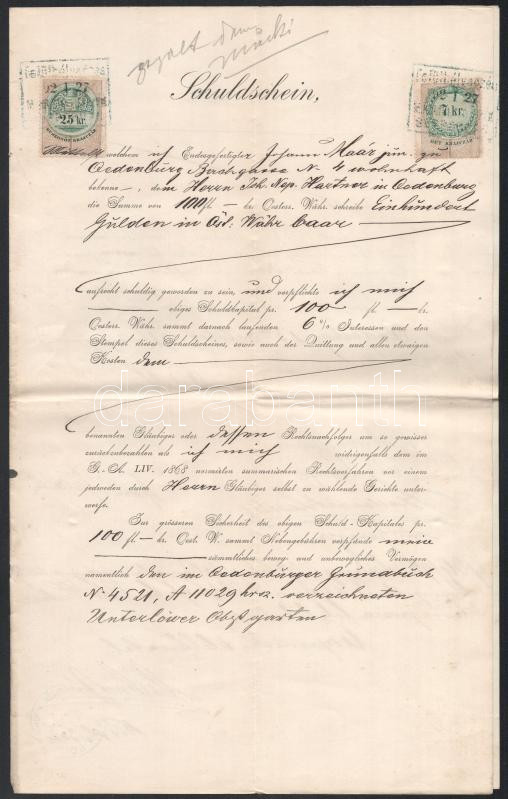 Schuldschein,
25 kr
7 kr
HÉT KRAJCZÁR
welchem ich Endesgefertigter Johann Maár jun. zu
Oedenburg Bachgasse No 4 wohnhaft
bekenne —, dem Herrn Joh. Nep. Hartner in Oedenburg
die Summe von 100 fl — kr Oesterr. Währ. schreibe Einhundert
Gulden in Öst: Währ baar —
aufrecht schuldig geworden zu sein, und verpflichte ich mich
obiges Schuldkapital pr. 100 fl — kr.
Oesterr. Währ. sammt darnach laufenden 6 % Interessen und den
Stempel dieses Schuldscheines, sowie auch der Quittung und allen etwaigen
Kosten dem —
darabanth
benannten Gläubiger oder dessen Rechtsnachfolger um so gewisser
zurückzubezahlen als ich mich widrigenfalls dem im
G.-A. LIV. 1868 normirten summarischen Rechtsverfahren vor einem
jedweden durch Herrn Gläubiger selbst zu wählende Gerichte unter-
werfe.
Zur grösseren Sicherheit des obigen Schuld-Kapitales pr.
100 fl — kr. Oest. W. sammt Nebengebühren verpfände meine
sämmtliches beweg- und unbewegliches Vermögen
namentlich den im Oedenburger Grundbuch
No 4521, A 11029 hrsz. verzeichneten
Unterlöwer Obstgarten